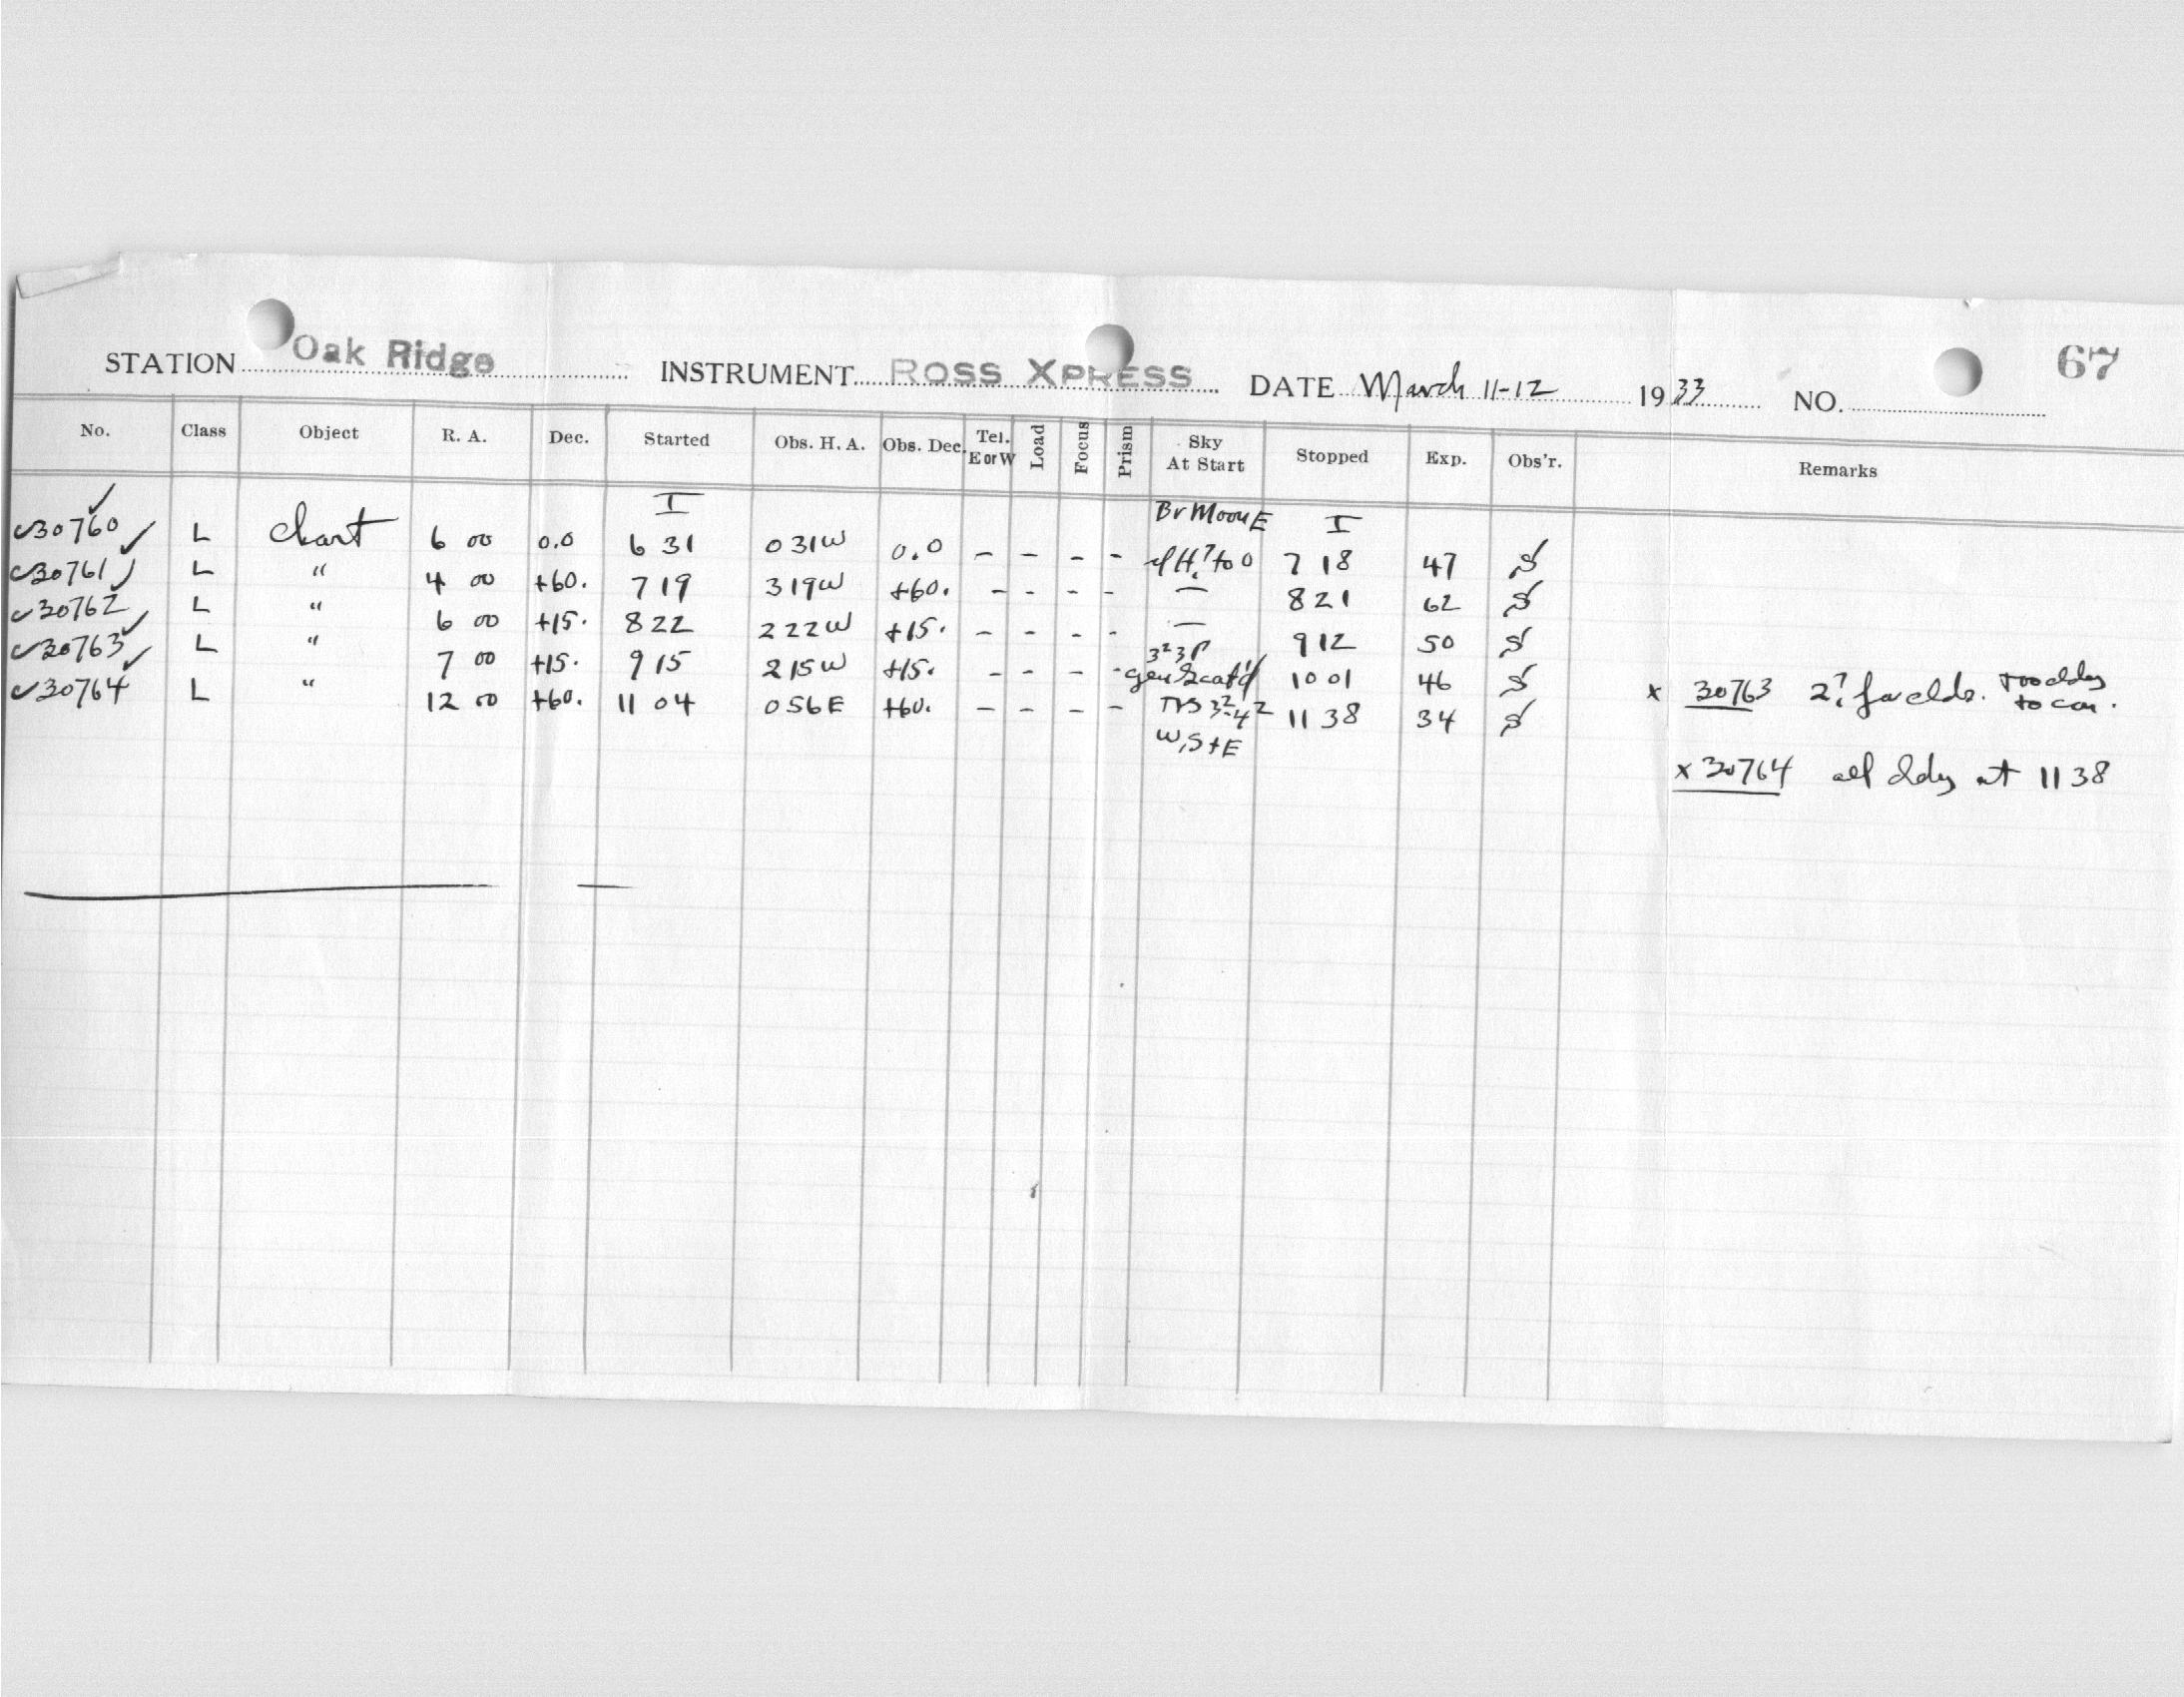 STATION Oak Ridge INSTRUMENT ROSS XPRESS DATE March 11-12 1933 NO. 67
No. Class Object R. A. Dec. Started Obs. H. A. Obs. Dec. Tel. E or W Load Focus Prism Sky At Start Stopped Exp. Obs'r. Remarks
I Br Moon E I
c30760 L Chart 6 00 0.0 6 31 0 31W 0.0 - - - - to 0 7 18 47 S
c30761 L " 4 00 +60. 7 19 3 19W +60. - - - - — 8 21 62 S
c30762 L " 6 00 +15. 8 22 2 22W +15. - - - - — 9 12 50 S
c30763 L " 7 00 +15. 9 15 2 15W +15. - - - - gen scat'd 10 01 46 S
c30764 L " 12 00 +60. 11 04 0 56E +60. - - - - 11 38 34 S
W, S + E
x 30763 2? too cldy
to con.
x 30764 all cldy at 11 38